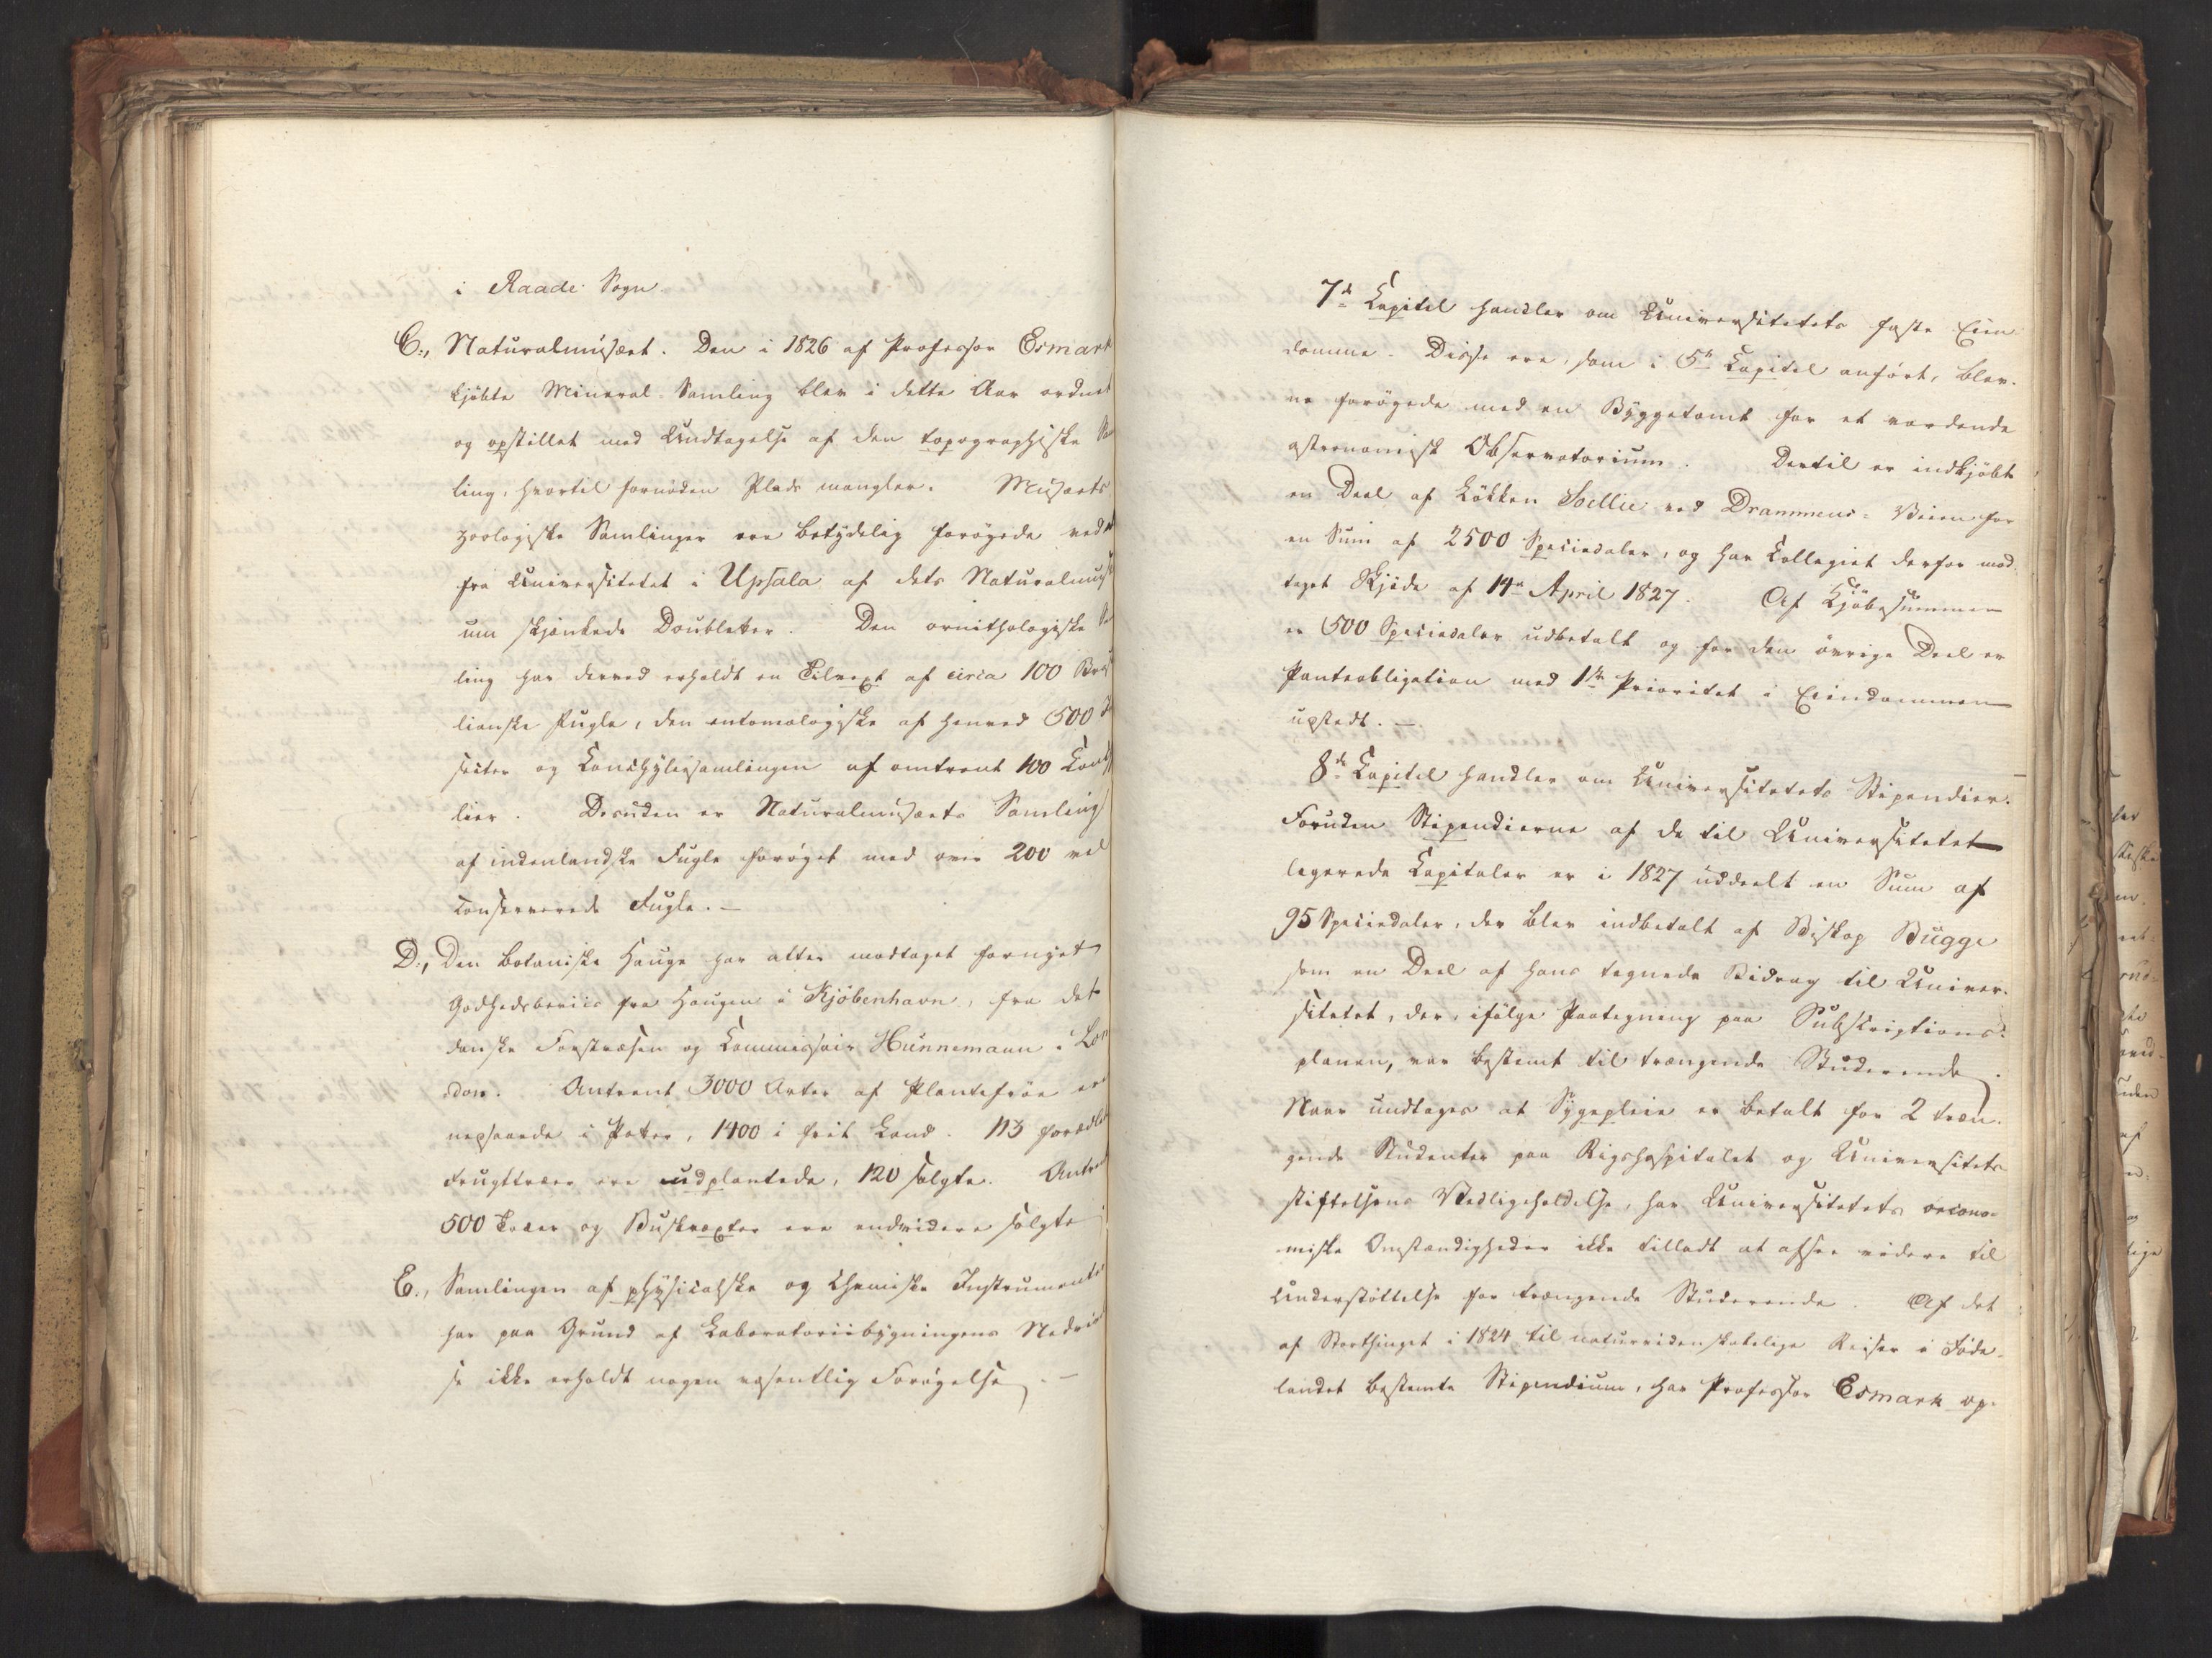 i Raade Sogn.
C., Naturalmusæet. Den i 1826 af Professor Esmark
kjöbte Mineral-Samling blev i dette Aar ordnet
og opstillet med Undtagelse af den topographiske Sam
ling, hvortil fornøden Plads mangler. Musæets
zoologiske Samlinger ere betydelig forøgede ved
fra Universitetet i Upsala af dets Naturalmusæ
um skjænkede Doubletter. Den ornithologiske Sam
ling har derved erholdt en Tilvext af circa 100 Brasi
lianske Fugle, den entomologiske af henved 500 In
secter og Conchyliesamlingen af omtrent 100 Conchy
lier. Desuden er Naturalmusæets Samling
af indenlandske Fugle forøget med over 200 vel
conserverede Fugle. —
D., Den botaniske Hauge har atter modtaget fornyet
Godhedsbeviis fra Haugen i Kjöbenhavn, fra det
danske Forstvæsen og Commissair Hünnemann i Lon
don. Omtrent 3000 Arter af Plantefröe ere
udsaaede i Potter, 1400 i frit Land. 113 forædlede
Frugttræer ere udplantede, 120 solgte. Omtrent
500 Træer og Buskvexter ere endvidere solgte.
E., Samlingen af physicalske og chemiske Instrumenter
har paa Grund af Laboratoriibygningens Nedriv
se ikke erholdt nogen væsentlig Forøgelse. —
7de Capitel handler om Universitetets faste Eien-
domme. Disse ere, som i 5te Capitel anført, blev-
ne forøgede med en Byggetomt for et vordende
astronomisk Observatorium. Dertil er indkjöbt
en Deel af Løkken Soellie ved Drammens-Veien for
en Sum af 2500 Speciedaler, og har Collegiet derfor mod-
taget Skjöde af 14de April 1827. Af Kjöbesummen
er 500 Speciedaler udbetalt og for den övrige Deel er
Panteobligation med 1ste Prioritet i Eiendommen
udstedt. —
8de Capitel handler om Universitetets Stipendier.
Foruden Stipendierne af de til Universitetet
legerede Capitaler er i 1827 uddeelt en Sum af
95 Speciedaler, der blev indbetalt af Biskop Bugge
som en Deel af hans tegnede Bidrag til Univer-
sitetet, der, ifølge Paategning paa Subscriptions-
planen, var bestemt til trængende Studerende.
Naar undtages at Sygepleie er betalt for 2 træn-
gende Studenter paa Rigshospitalet og Universitets-
stiftelsens Vedligeholdelse, har Universitetets oecono-
miske Omstændigheder ikke tilladt at afsee videre til
Understøttelse for trængende Studerende. Af det
af Storthinget i 1824 til naturvidenskabelige Reiser i Føde-
landet bestemte Stipendium, har Professor Esmark op-